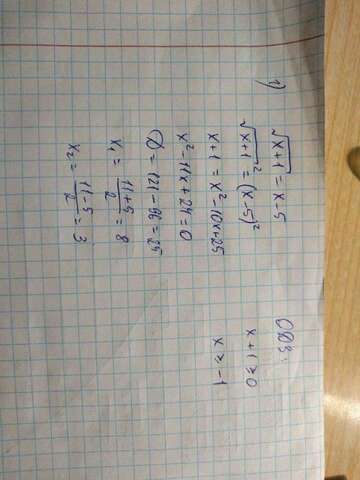 1) √x+1 = x-5
√x+1² = (x-5)²
x+1 = x²-10x+25
x²-11x+24=0
D = 121-96=25
x₁ = 11+5/2 = 8
x₂ = 11-5/2 = 3
ОДЗ:
x+1≥0
x≥-1